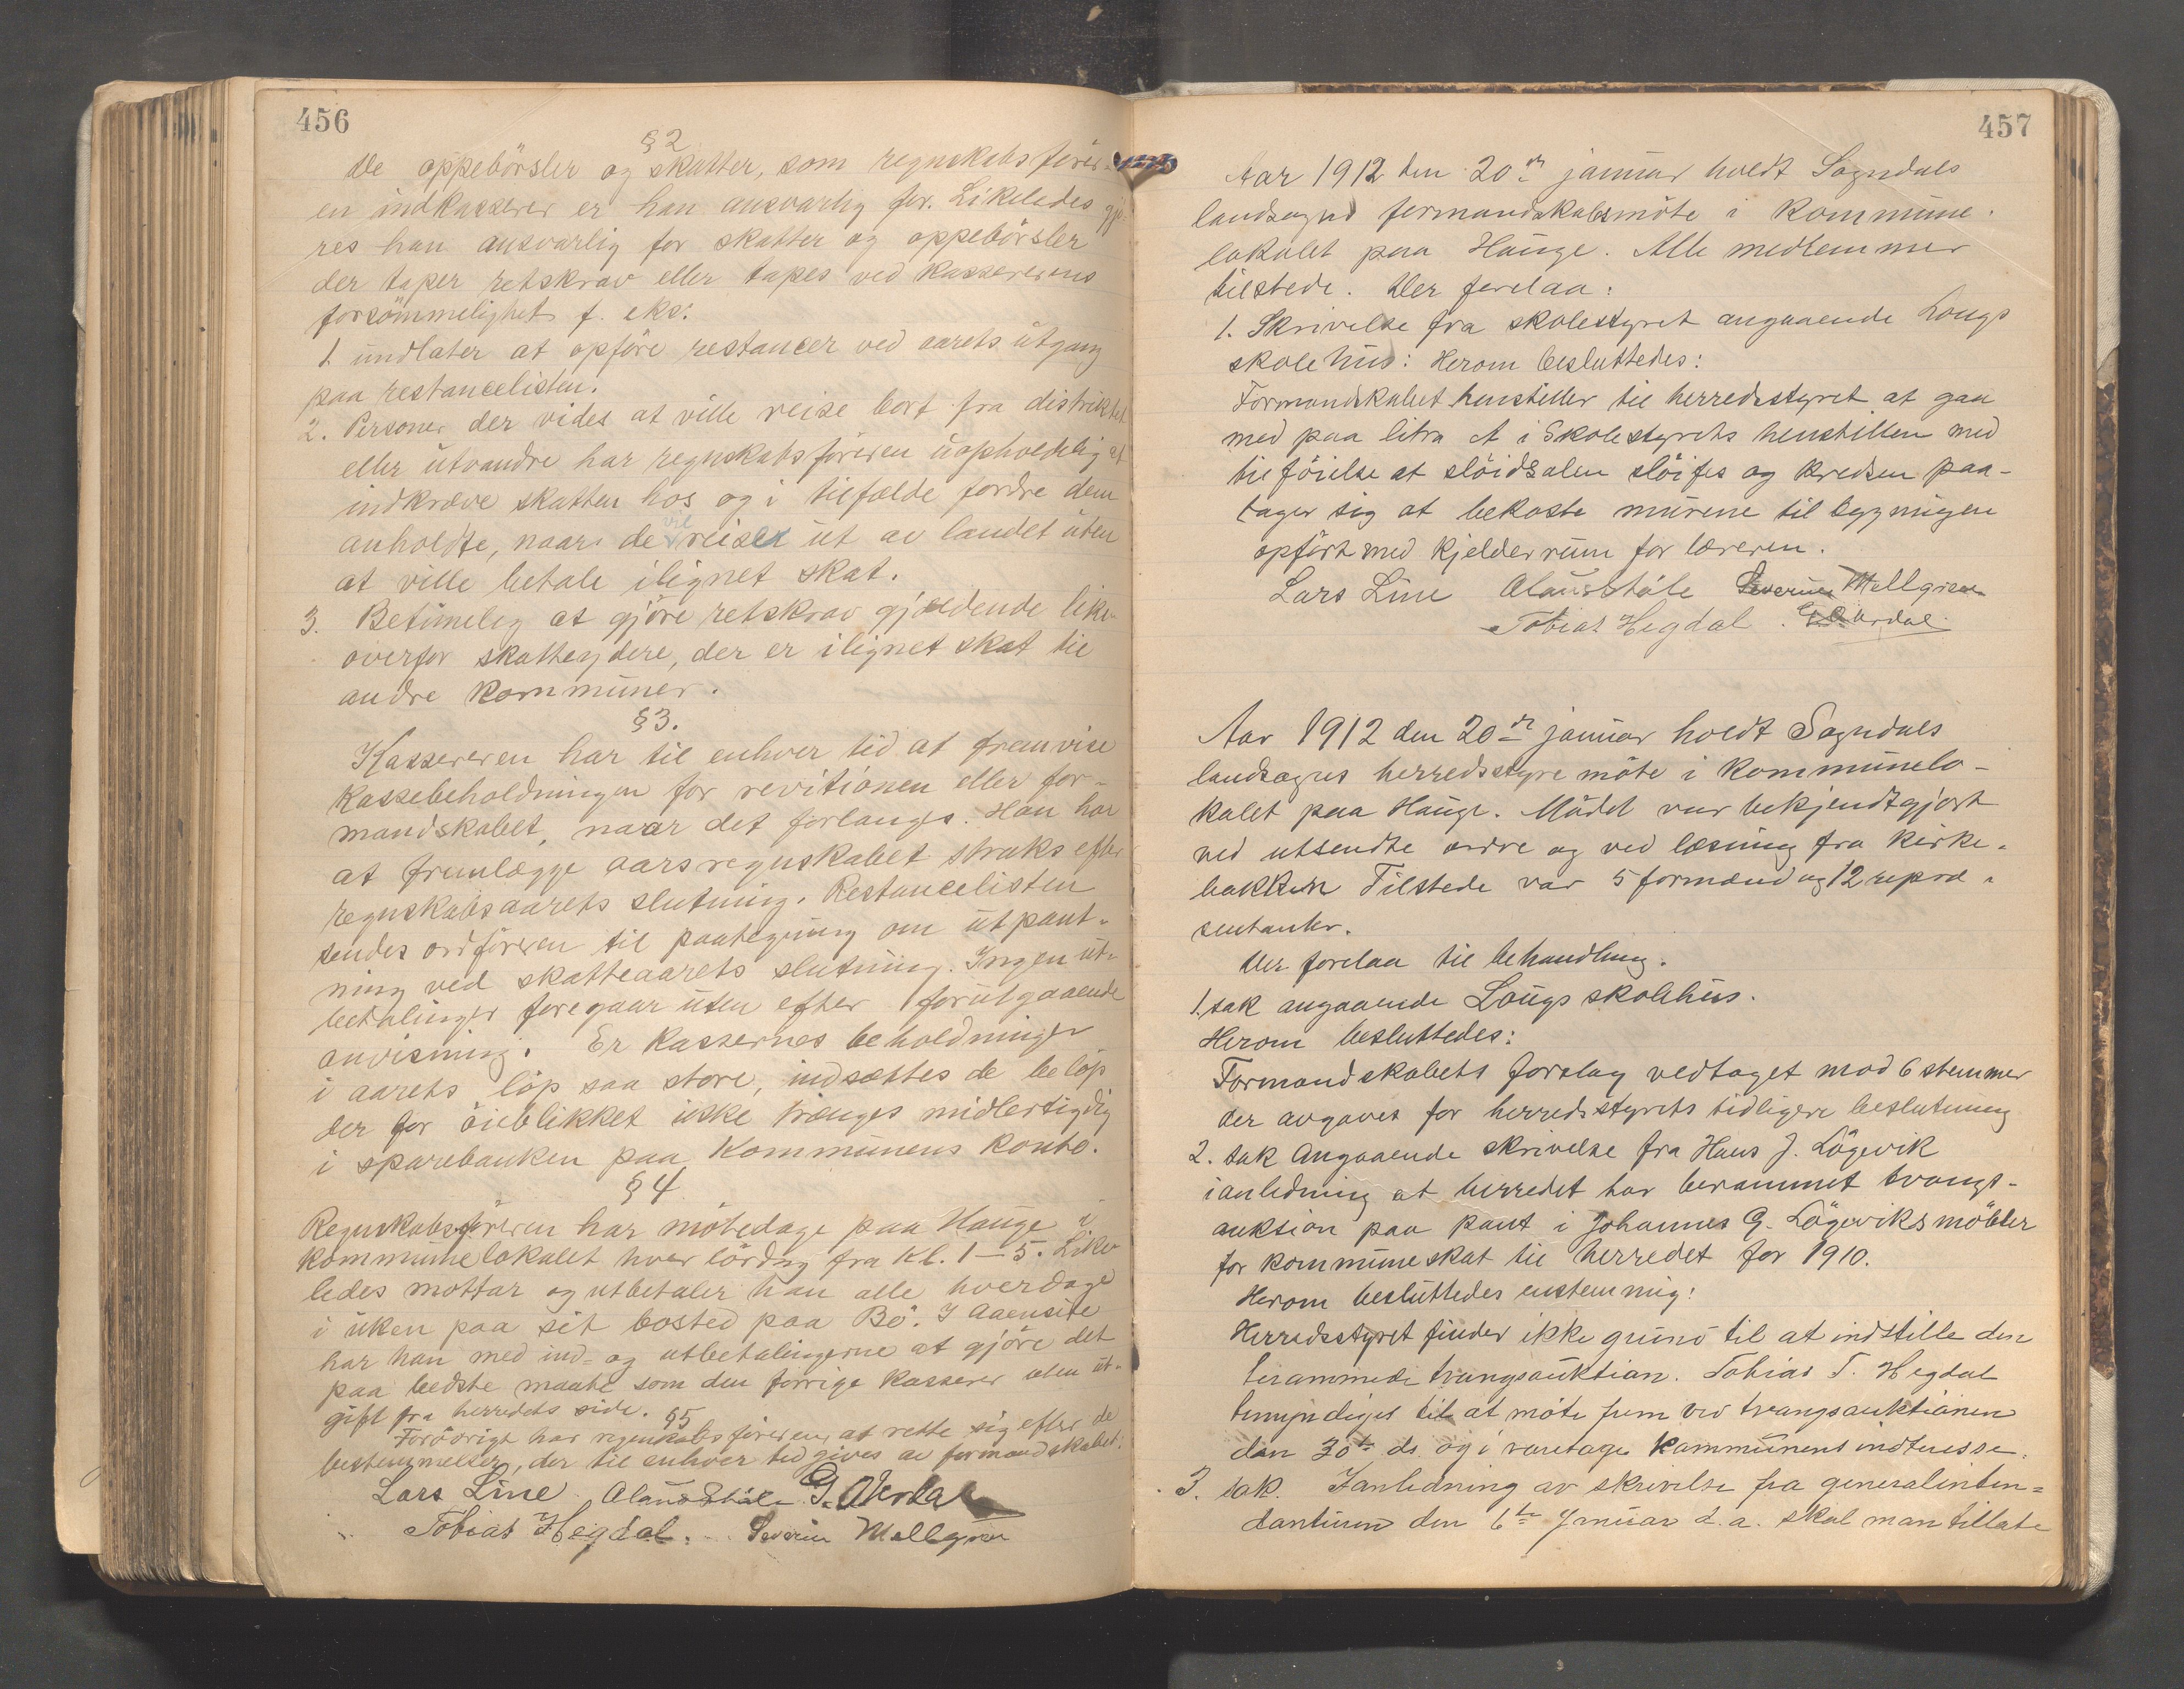 456
§2
De oppebörsler og skatter, som regnskabsförer-
en indkasserer er han ansvarlig for. Likeledes gjö-
res han ansvarlig for skatter og oppebörsler
der taper retskrav eller tapes ved kassererens
forsömmelighet f. eks:
1. undlater at opföre restancer ved aarets utgang
paa restancelisten.
2. Personer der vides at ville reise bort fra distriktet
eller utvandre har regnskabsföreren uopholdelig at
indkræve skatten hos og i tilfælde fordre dem
anholdte, naar de vil reise ut av landet uten
at ville betale ilignet skat.
3. Betimelig at gjöre retskrav gjældende like-
overfor skatteydere, der er ilignet skat til
andre kommuner.
§3.
Kassereren har til enhver tid at fremvise
kassebeholdningen for revitionen eller for-
mandskabet, naar det forlanges. Han har
at fremlægge aarsregnskabet straks efter
regnskabsaarets slutning. Restancelisten
sendes ordföreren til paategning om utpant-
ning ved skatteaarets slutning. Ingen ut-
betalinger foregaar uten efter forutgaaende
anvisning. Er kassernes beholdninger
i aarets löp saa store, indsættes de belöp
der for öieblikket ikke trænges midlertigdig
i sparebanken paa Kommunens konto.
§4
Regnskabsföreren har mötedage paa Hauge i
kommunelokalet hver lördag fra kl. 1-5. Like
ledes mottar og utbetaler han alle hverdage
i uken paa sit bosted paa Bö. I Aaensire
har han med ind- og utbetalingerne at gjöre det
paa bedste maate som den forrige kasserer uten ut-
gift fra herredets side.
§5
Forövrigt har regnskabsföreren at rette sig efter de
bestemmelser, der til enhver tid gives av formandskabet.
Lars Line Olaus Ståle G. Aurdal
Tobias Hegdal. Severin Mellgren
457
Aar 1912 den 20de januar holdt Sogndals
landsogns formandskabsmöte i kommune-
lokalet paa Hauge. Alle medlemmer
tilstede. Der forelaa:
1. Skrivelse fra skolestyret angaaende Lougs
skolehus: Herom besluttedes:
Formandskabet henstiller til herredsstyret at gaa
med paa litra A i Skolestyrets henstillen med
tilföielse at slöidsalen slöifes og kredsen paa-
tager sig at bekoste murene til bygnigen
opfört med kjelderrum for læreren.
Lars Line Olaus Ståle Severin Mellgren
Tobias Hegdal. G Aurdal
Aar 1912 den 20de januar holdt Sogndals
landsogns herredsstyre möte i kommunelo-
kalet paa Hauge. Mödet var bekjendtgjort
ved utsendte ordre og ved læsning fra kirke-
bakken Tilstede var 5 formænd og 12 repræ-
sentanter.
Der forelaa til behandling.
1. sak angaaende Lougs skolehus.
Herom besluttedes:
Formandskabets forslag vedtaget mod 6 stemmer
der avgaves for herredsstyrets tidligere beslutning
2. sak Angaaende skrivelse fra Hans J. Lögevik
ianledning at herredet har berammet tvangs-
auktion paa pant i Johannes G. Lögeviks möbler
for kommuneskat til herredet for 1910.
Herom besluttedes enstemmig:
Herredsstyret finder ikke grund til at indstille den
berammede tvangsauktion. Tobias T. Hegdal
bemyndiges til at möte frem ved tvangsauktionen
den 30te ds. og i varetage Kommunens indteresse.
3. sak. Ianledning av skrivelse fra generalinten-
danturen den 6te Januar d.a. skal man tillate